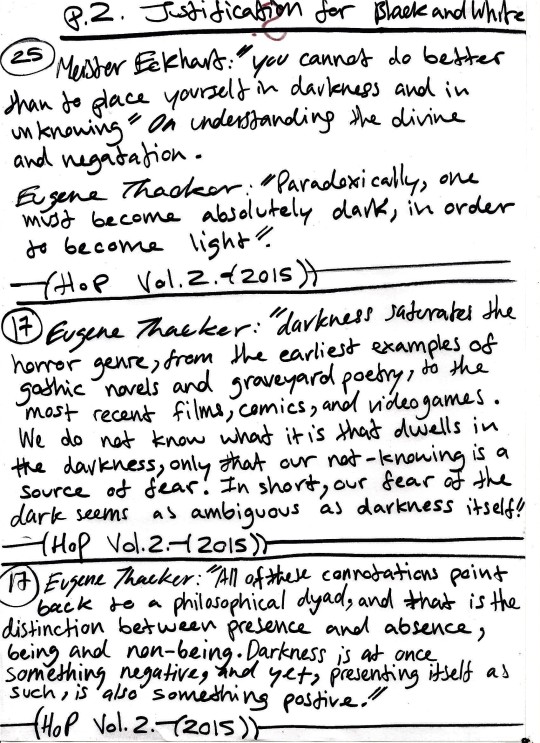 P.2. Justification for Black and White
?
25 Meister Eckhart: "you cannot do better
than to place yourself in darkness and in
unknowing" On understanding the divine
and negatation.
Eugene Thacker: "Paradoxically, one
must become absolutely dark, in order
to become light".
(HoP Vol.2.-(2015))
17 Eugene Thacker: "darkness saturates the
horror genre, from the earliest examples of
gothic novels and graveyard poetry, to the
most recent films, comics, and videogames.
We do not know what it is that dwells in
the darkness, only that our not-knowing is a
source of fear. In short, our fear of the
dark seems as ambiguous as darkness itself!"
(HoP Vol.2.-(2015))
17 Eugene Thacker: "All of these connotations point
back to a philosophical dyad, and that is the
distinction between presence and absence,
being and non-being. Darkness is at once
something negative, and yet, presenting itself as
such, is also something postive."
(HoP Vol.2.-(2015))